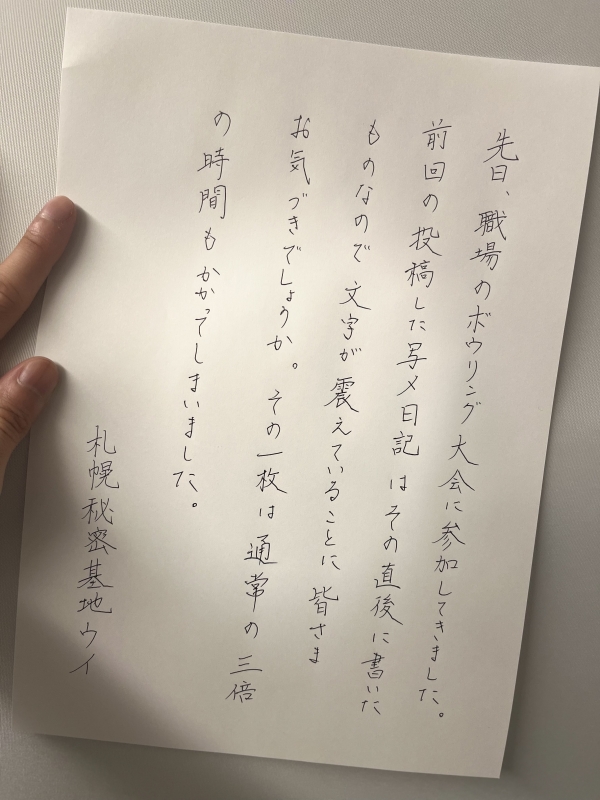 先日、職場のボウリング大会に参加してきました。
前回の投稿した写メ日記はその直後に書いた
ものなので文字が震えていることに皆さま
お気づきでしょうか。その一枚は通常の三倍
の時間もかかってしまいました。
札幌秘密基地ウイ